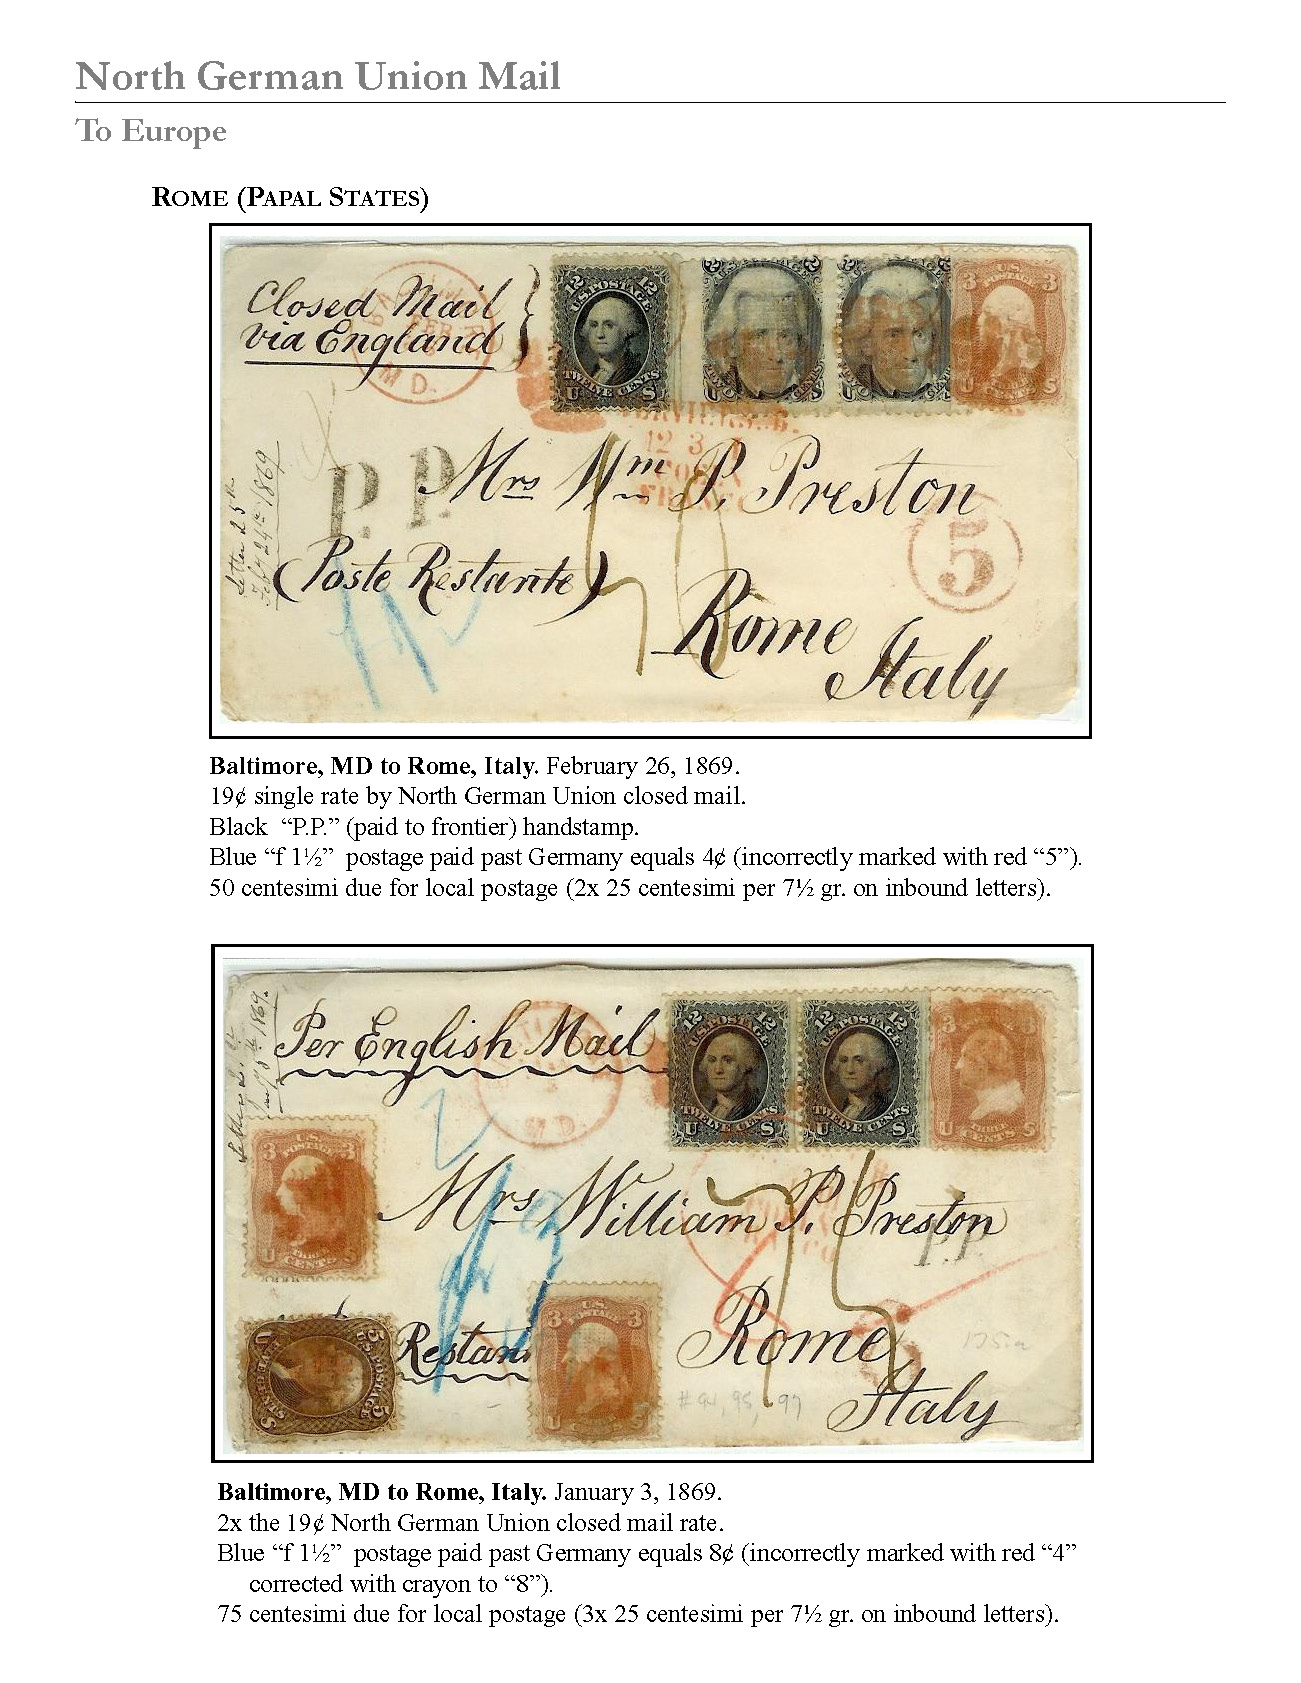 North German Union Mail
To Europe
ROME (PAPAL STATES)
Closed Mail
via England
MD.
12 U.S. POSTAGE 12
TWELVE CENTS
U S
2 2
U S
2 2
U S
3 U.S. 3
U S
12 3
P.P.
Mrs Wm P. Preston
5
(Poste Restante)
Rome
Italy
Letter 25th
Feby 24th 1869
Baltimore, MD to Rome, Italy. February 26, 1869.
19¢ single rate by North German Union closed mail.
Black “P.P.” (paid to frontier) handstamp.
Blue “f 1½” postage paid past Germany equals 4¢ (incorrectly marked with red “5”).
50 centesimi due for local postage (2x 25 centesimi per 7½ gr. on inbound letters).
1869.
Per English Mail
MD.
12 U.S. POSTAGE 12
TWELVE CENTS
U S
12 U.S. POSTAGE 12
TWELVE CENTS
U S
3 3
CENTS
U S
3 U.S. 3
POSTAGE
CENTS
U
Mrs William P. Preston
P.P.
5 U.S. POSTAGE 5
Restan
3 U.S. 3
POSTAGE
U
Rome
Italy
# 94, 95, 97
Baltimore, MD to Rome, Italy. January 3, 1869.
2x the 19¢ North German Union closed mail rate.
Blue “f 1½” postage paid past Germany equals 8¢ (incorrectly marked with red “4”
corrected with crayon to “8”).
75 centesimi due for local postage (3x 25 centesimi per 7½ gr. on inbound letters).